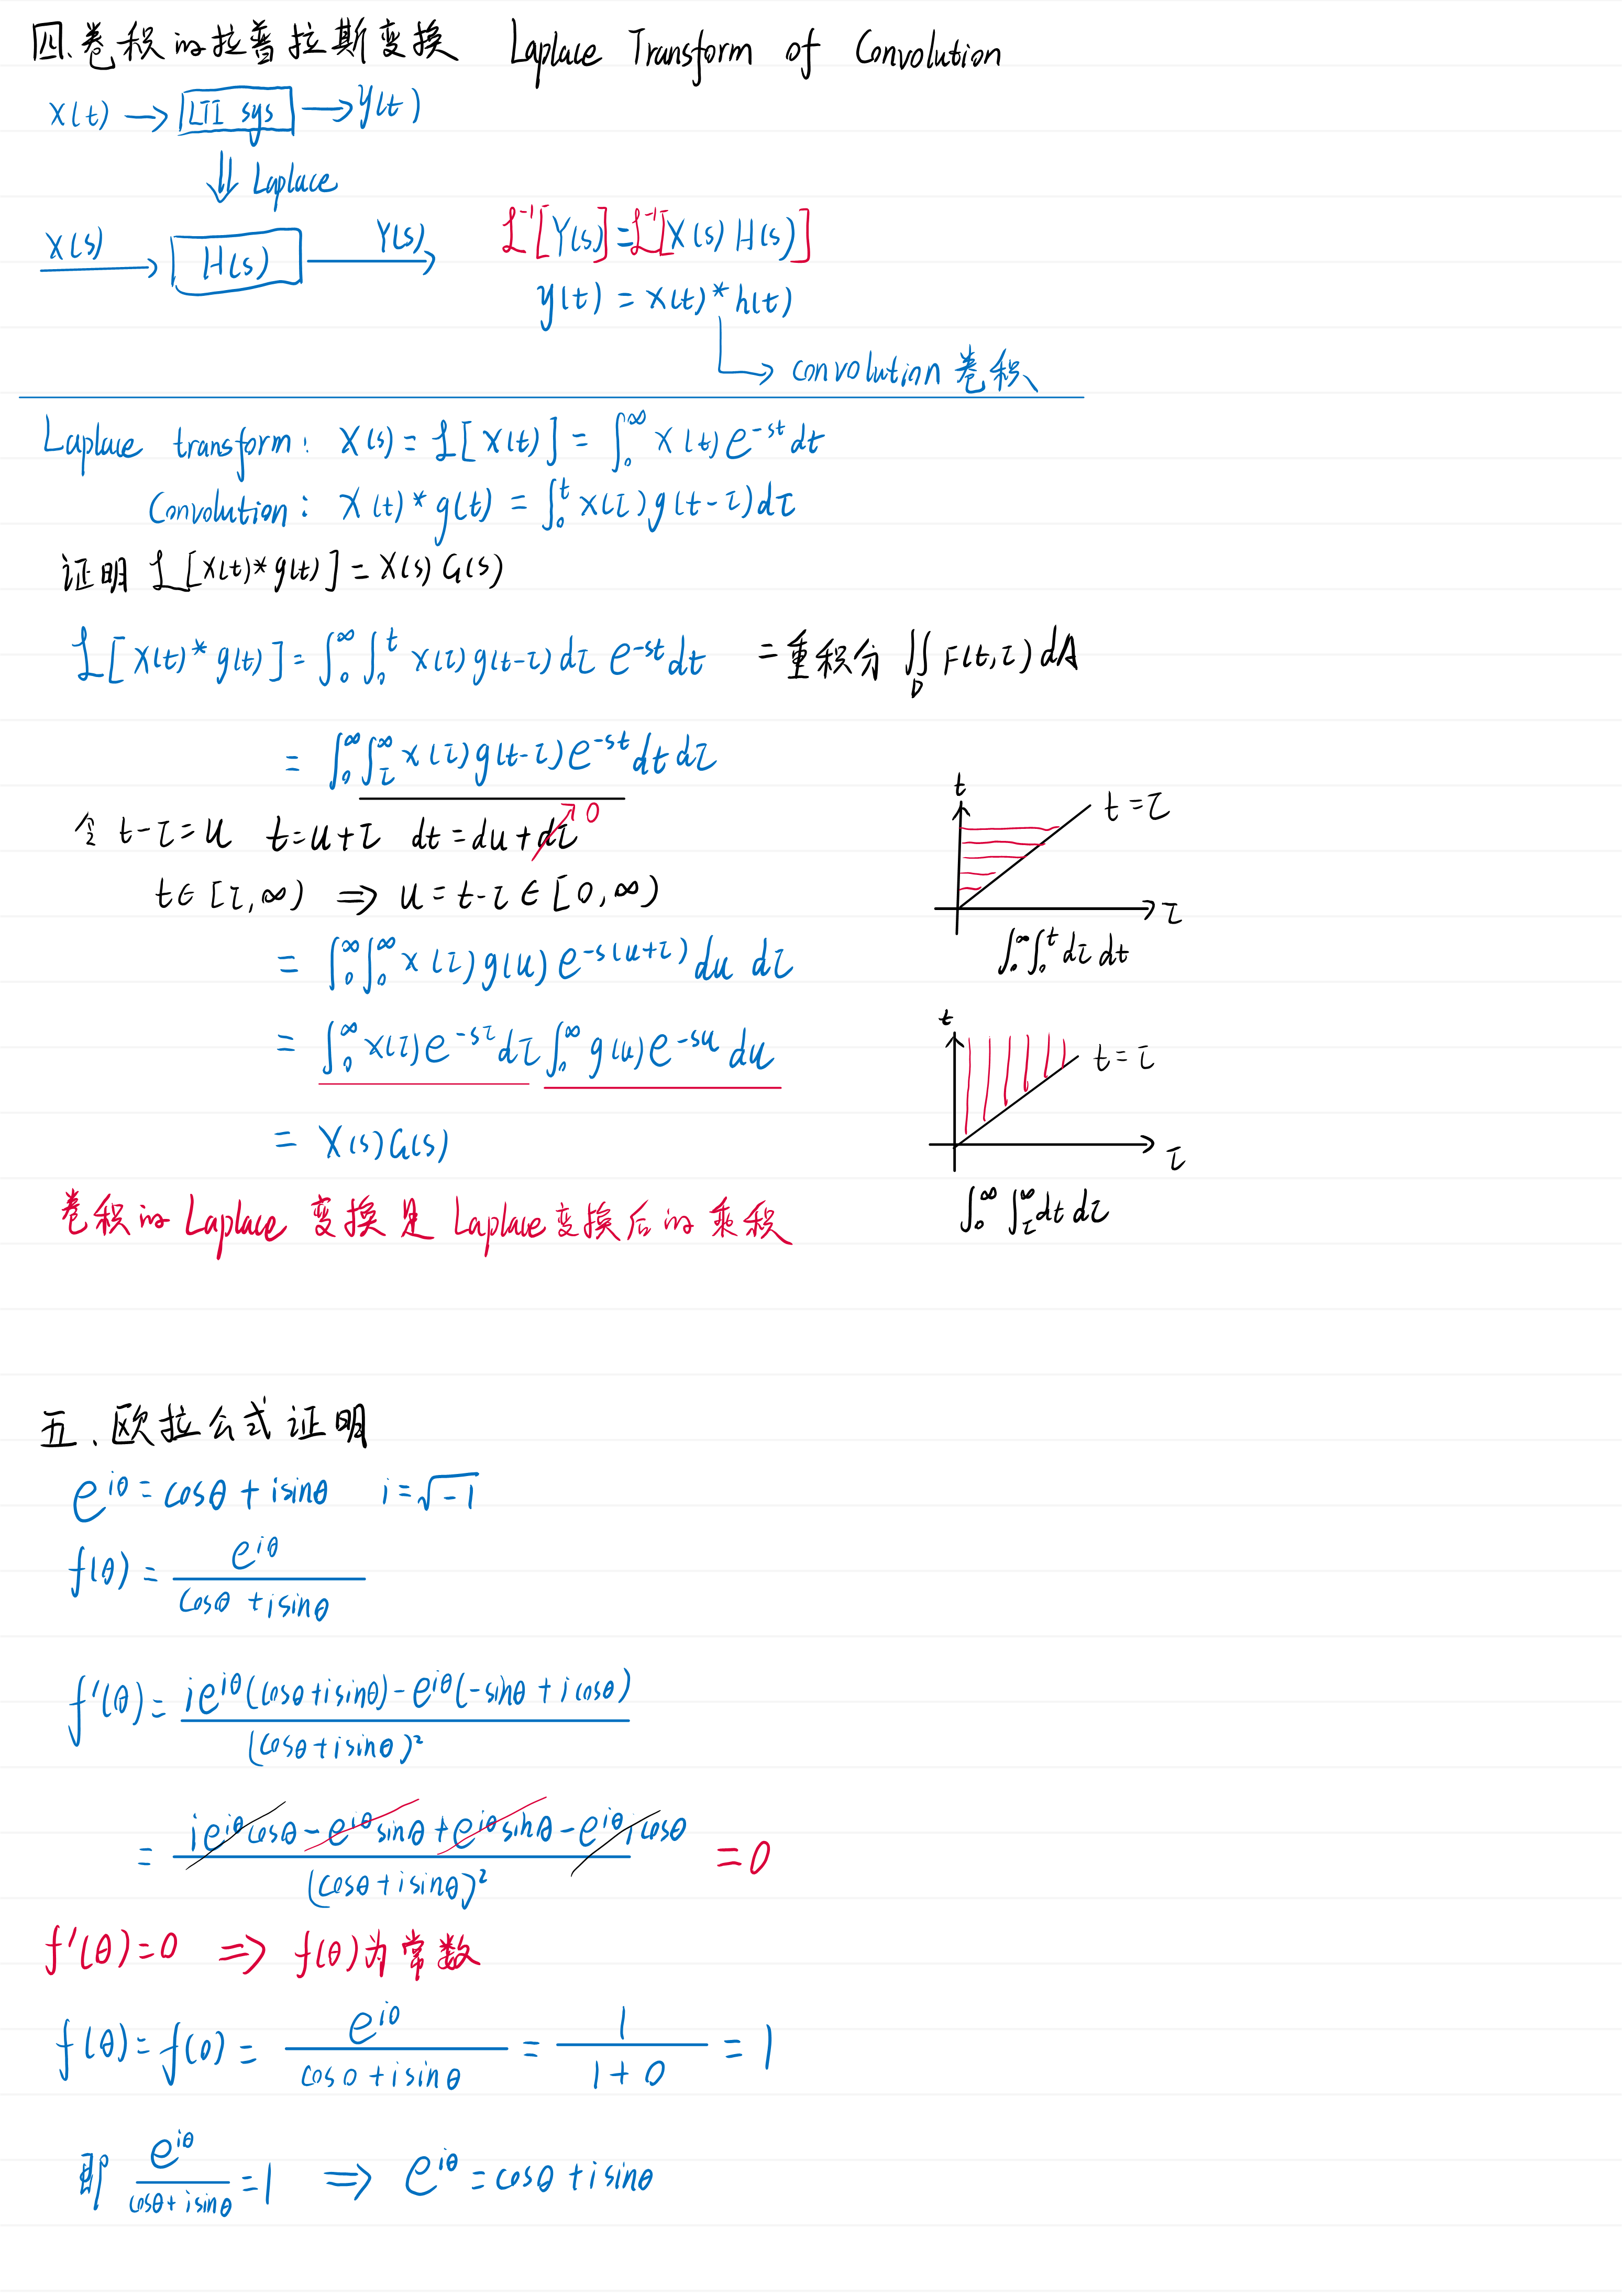 四、卷积的拉普拉斯变换 Laplace Transform of Convolution
x(t) → LTI sys → y(t)
⇓ Laplace
X(s) → H(s) → Y(s)
ℒ⁻¹[Y(s)] = ℒ⁻¹[X(s) H(s)]
y(t) = x(t) * h(t)
→ convolution 卷积
Laplace transform: X(s) = ℒ[x(t)] = ∫₀^∞ x(t) e^{-st} dt
Convolution: x(t) * g(t) = ∫₀^t x(τ) g(t-τ) dτ
证明 ℒ[x(t) * g(t)] = X(s) G(s)
ℒ[x(t) * g(t)] = ∫₀^∞ ∫₀^t x(τ) g(t-τ) dτ e^{-st} dt = 重积分 ∬_D F(t,τ) dA
= ∫₀^∞ ∫_τ^∞ x(τ) g(t-τ) e^{-st} dt dτ
令 t-τ = u t = u+τ dt = du + dτ ↗ 0
t ∈ [τ, ∞) ⇒ u = t-τ ∈ [0, ∞)
= ∫₀^∞ ∫₀^∞ x(τ) g(u) e^{-s(u+τ)} du dτ
= ∫₀^∞ x(τ) e^{-sτ} dτ ∫₀^∞ g(u) e^{-su} du
= X(s) G(s)
卷积的 Laplace 变换是 Laplace 变换后的乘积
t
t = τ
τ
∫₀^∞ ∫₀^t dτ dt
t
t = τ
τ
∫₀^∞ ∫_τ^∞ dt dτ
五、欧拉公式证明
e^{iθ} = cosθ + isinθ i = √-1
f(θ) = e^{iθ} / (cosθ + isinθ)
f'(θ) = (ie^{iθ}(cosθ + isinθ) - e^{iθ}(-sinθ + icosθ)) / (cosθ + isinθ)²
= (ie^{iθ}cosθ - e^{iθ}sinθ + e^{iθ}sinθ - e^{iθ}icosθ) / (cosθ + isinθ)² = 0
f'(θ) = 0 ⇒ f(θ)为常数
f(θ) = f(0) = e^{i0} / (cos0 + isinθ) = 1 / (1 + 0) = 1
即 e^{iθ} / (cosθ + isinθ) = 1 ⇒ e^{iθ} = cosθ + isinθ